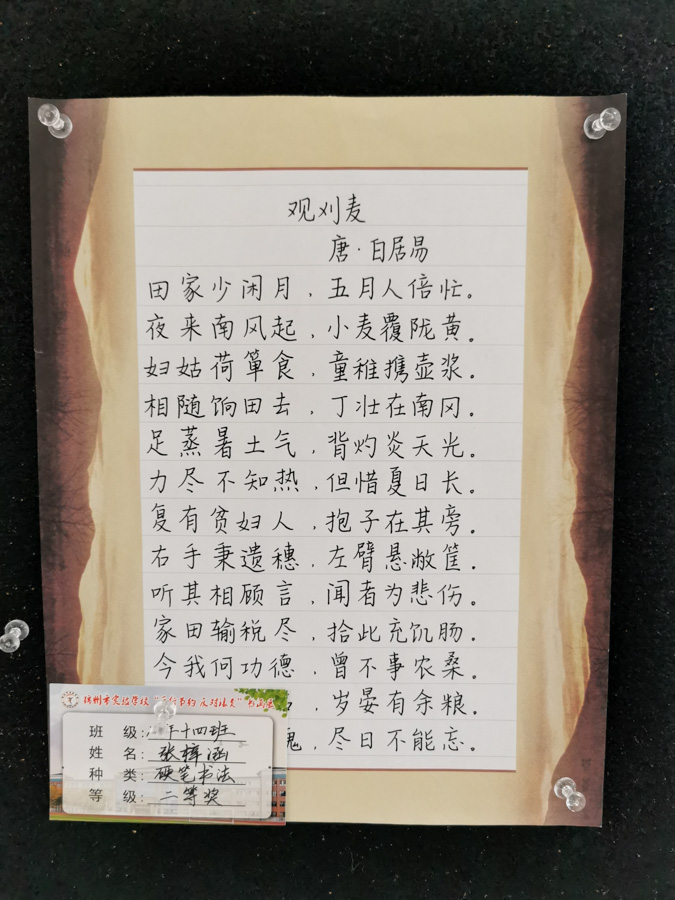 观刈麦
唐·白居易
田家少闲月,五月人倍忙。
夜来南风起,小麦覆陇黄。
妇姑荷箪食,童稚携壶浆。
相随饷田去,丁壮在南冈。
足蒸暑土气,背灼炎天光。
力尽不知热,但惜夏日长。
复有贫妇人,抱子在其旁。
右手秉遗穗,左臂悬敝筐。
听其相顾言,闻者为悲伤。
家田输税尽,拾此充饥肠。
今我何功德,曾不事农桑。
岁晏有余粮。
愧,尽日不能忘。
班级:十四班
姓名:张梓涵
种类:硬笔书法
等级:二等奖